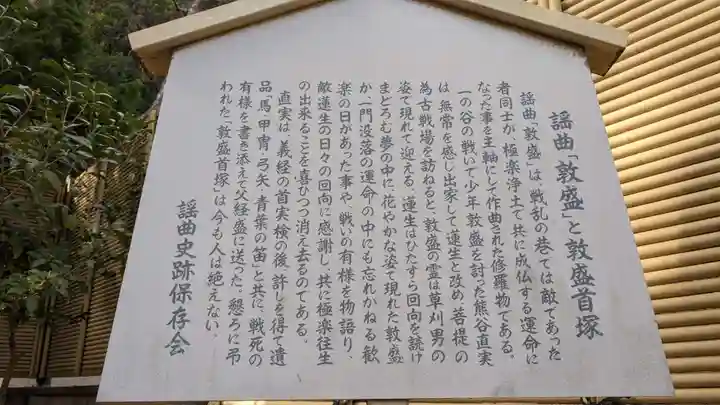 謡曲「敦盛」と敦盛首塚
謡曲「敦盛」は、戦乱の巷では敵であった
者同士が、極楽浄土で共に成仏する運命に
なった事を主軸にして作曲された修羅物である。
一の谷の戦いで少年敦盛を討った熊谷直実
は、無常を感じ出家して蓮生と改め、菩提の
為古戦場を訪ねると、敦盛の霊は草刈男の
姿で現れて迎える。蓮生はひたすら回向を続け
まどろむ夢の中に、花やかな姿で現れた敦盛
か、一門没落の運命の中にも忘れかねる歓
楽の日があった事や、戦いの有様を物語り、
敵蓮生の日々の回向に感謝し、共に極楽往生
の出来ることを喜びつつ消え去るのである。
直実は、義経の首実検の後、許しを得て遺
品「馬、甲冑、弓矢、青葉の笛」と共に、戦死の
有様を書き添えて父経盛に送った。懇ろに弔
われた「敦盛首塚」は今も人は絶えない。
謡曲史跡保存会